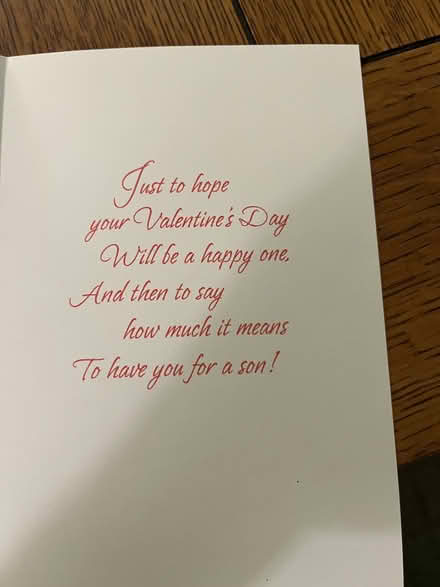 Just to hope
your Valentine's Day
Will be a happy one,
And then to say
how much it means
To have you for a son!